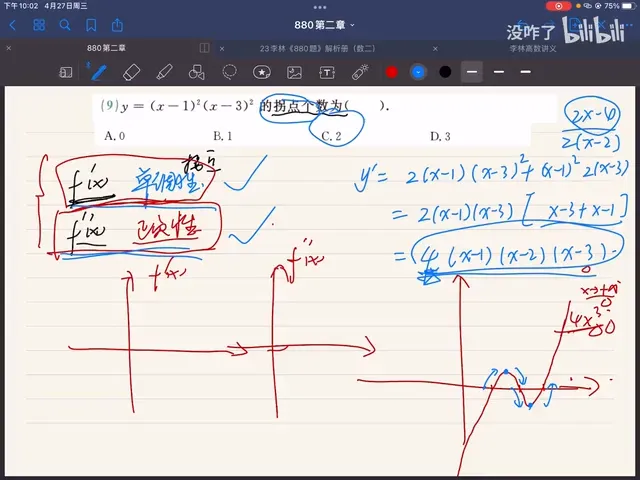 下午10:02 4月27日周三
75%
880 第二章
没咋了 bilibili
880 第二章
23李林《880题》解析册（数二）
李林高数讲义
(9) y = (x-1)²(x-3)² 的拐点个数为( ).
A. 0 B. 1 C. 2 D. 3
2x-4
2(x-2)
f'(x) 单调性
f''(x) 凹凸性
y' = 2(x-1)(x-3)²+(x-1)² 2(x-3)
= 2(x-1)(x-3) [ x-3+x-1 ]
= 4 (x-1)(x-2)(x-3)
f'(x)
f''(x)
x→+∞
4x³